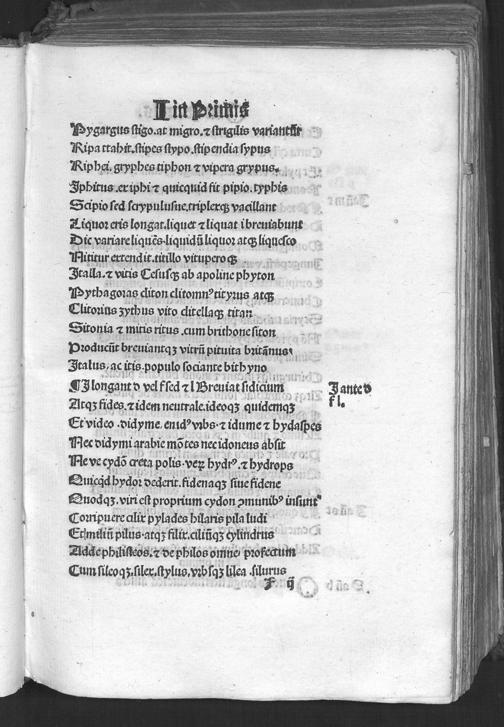 I in Primis
Pygargus stigo. at migro. ⁊ strigilis variantur
Ripa trahit. stipes stypo. stipendia sypus
Riphei. gryphes tiphon ⁊ vipera grypus.
Iphitus. exiphi ⁊ quicquid fit pipio. typhis
Scipio sed scrypulusue. triplexqꝫ vacillant
Liquor eris longat. liquet ⁊ liquat i breuiabunt
Dic variare liquēs. liquidū liquor atqꝫ liquesco
Nititur extendit. titillo vituperoqꝫ
Italla. ⁊ vitis Cesusqꝫ ab apoline phyton
Pythagoras cliton clitomnꝰ tityrus atqꝫ
Clitorius zythus vito ditellaqꝫ titan
Sitonia ⁊ mitis ritus cum brithone siton
Producūt breuiantqꝫ vitrū pituita britānus.
Italus. ac itis. populo sociante bithyno
¶ I longant d vel f sed ⁊ l Breuiat fidicum
Atqꝫ fides. ⁊ idem neutrale. ideoqꝫ quidemqꝫ
Et video. didyme. enidꝰ vrbs ⁊ idume ⁊ hydaspes
Nec didymi arabie mōtes nec idoneus absit
Ne ve cydō creta polis. veꝝ hydrꝰ. ⁊ hydrops
Quicqd hydor dederit. fidenaqꝫ siue fidene
Quodqꝫ. viri est proprium cydon ꝯmunibꝰ insunt
Corripuere cilix pylades hilaris pila ludi
Et milium pilus atqꝫ silix. ciliūqꝫ cylindrus
Adde philisteos. ⁊ de philos omne profectum
Cum sileoqꝫ. silex. stylus. vrbsqꝫ lilea. silurus
F ij
I ante d
f l.